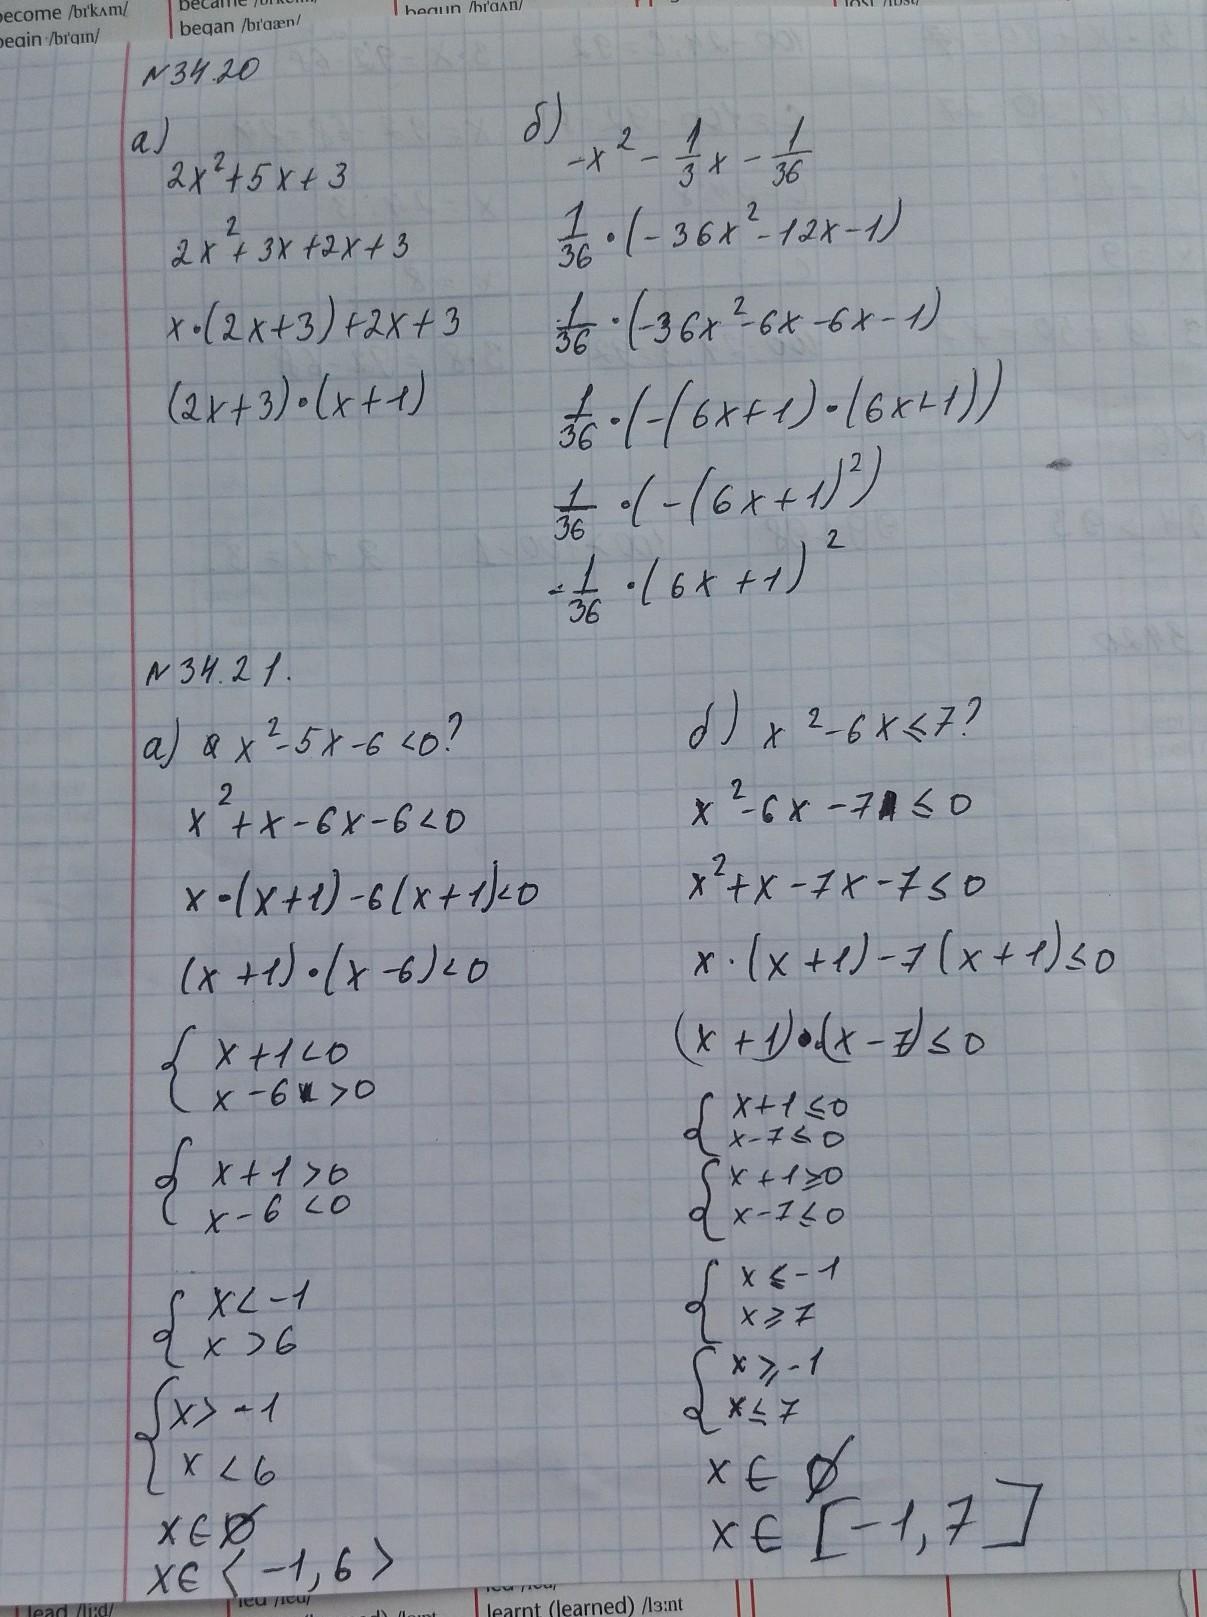 become /bɪˈkʌm/
begin /bɪˈgɪn/
began /bɪˈgæn/
begun /bɪˈgʌn/
N34.20
а)
2x²+5x+3
2x²+3x+2x+3
x•(2x+3)+2x+3
(2x+3)•(x+1)
б) -x² - 1/3 x - 1/36
1/36 • (-36x²-12x-1)
1/36 • (-36x²-6x-6x-1)
1/36 • (-(6x+1)•(6x+1))
1/36 • (-(6x+1)²)
- 1/36 • (6x+1)²
N34.21.
а) x²-5x-6<0?
x²+x-6x-6<0
x•(x+1)-6(x+1)<0
(x+1)•(x-6)<0
{ x+1<0
x-6>0
{ x+1>0
x-6<0
{ x<-1
x>6
{ x>-1
x<6
x∈∅
x∈⟨-1,6⟩
б) x²-6x≤7?
x²-6x-7≤0
x²+x-7x-7≤0
x·(x+1)-7(x+1)≤0
(x+1)•(x-7)≤0
{ x+1≤0
x-7≤0
{ x+1≥0
x-7≤0
{ x≤-1
x≥7
{ x≥-1
x≤7
x∈∅
x∈[-1,7]
lead /liːd/
learnt (learned) /lɜːnt